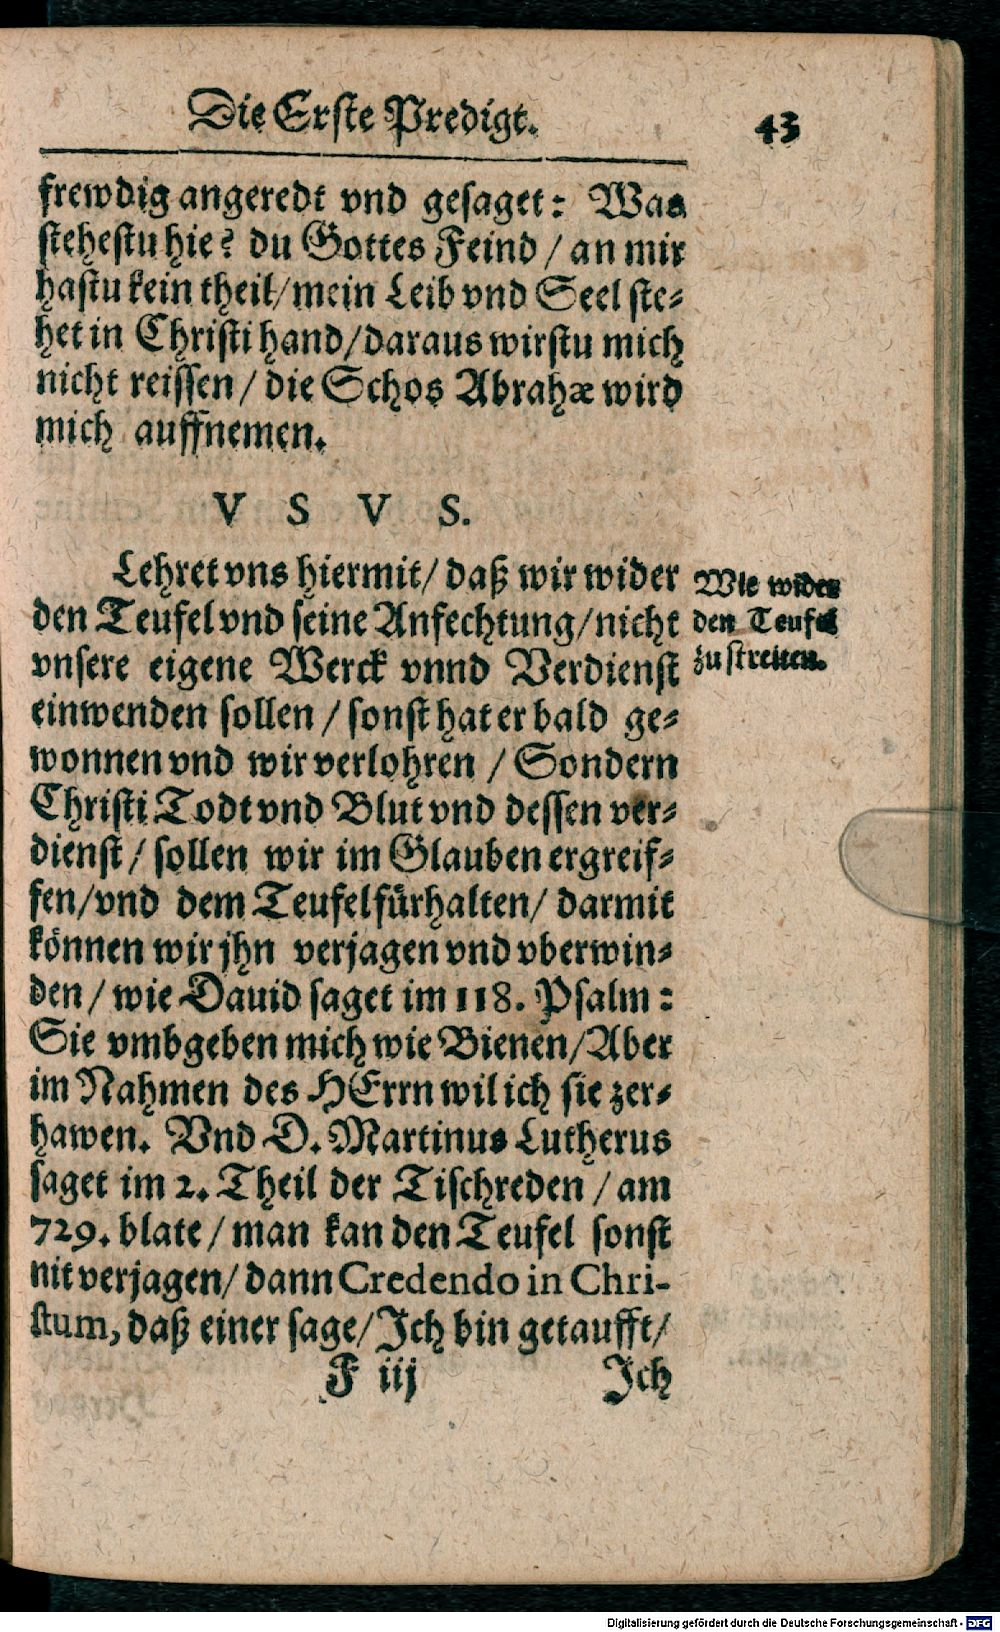 Die Erste Predigt. 43
frewdig angeredt vnd gesaget: Was
stehestu hie? du Gottes Feind / an mir
hastu kein theil / mein Leib vnd Seel ste-
het in Christi hand / daraus wirstu mich
nicht reissen / die Schos Abrahæ wird
mich auffnemen.
V S V S.
Lehret vns hiermit / daß wir wider
den Teufel vnd seine Anfechtung / nicht
vnsere eigene Werck vnnd Verdienst
einwenden sollen / sonst hat er bald ge-
wonnen vnd wir verlohren / Sondern
Christi Todt vnd Blut vnd dessen ver-
dienst / sollen wir im Glauben ergreif-
fen / vnd dem Teufel fürhalten / darmit
können wir jhn verjagen vnd vberwin-
den / wie Dauid saget im 118. Psalm:
Sie vmbgeben mich wie Bienen / Aber
im Nahmen des HErrn wil ich sie zer-
hawen. Vnd D. Martinus Lutherus
saget im 2. Theil der Tischreden / am
729. blate / man kan den Teufel sonst
nit verjagen / dann Credendo in Chri-
stum, daß einer sage / Ich bin getaufft /
F iij Ich
Wie wider
den Teufel
zu streiten.
Digitalisierung gefördert durch die Deutsche Forschungsgemeinschaft - DFG